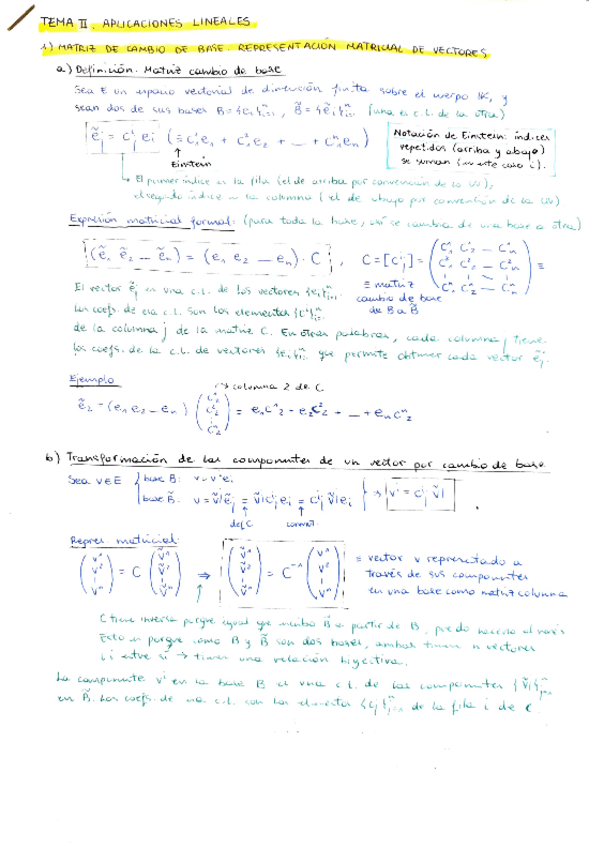 TEMA II. APLICACIONES LINEALES
1) MATRIZ DE CAMBIO DE BASE. REPRESENTACIÓN MATRICIAL DE VECTORES
a) Definición. Matriz cambio de base
Sea E un espacio vectorial de dimensión finita sobre el cuerpo IK, y
sean dos de sus bases B={eᵢ}ⁿᵢ₌₁, B̃={ẽᵢ}ⁿᵢ₌₁ (una es c.l. de la otra)
ẽⱼ = cⁱⱼ eᵢ (≡ c¹ⱼe₁ + c²ⱼe₂ + ... + cⁿⱼeₙ)
Einstein
Notación de Einstein: índices
repetidos (arriba y abajo)
se suman (en este caso i).
↳ El primer índice es la fila (el de arriba por convención de la UV),
el segundo índice es la columna (el de abajo por convención de la UV)
Expresión matricial formal: (para toda la base, así se cambia de una base a otra)
(ẽ₁ ẽ₂ ... ẽₙ) = (e₁ e₂ ... eₙ) · C , C = [cⁱⱼ] = (c¹₁ c¹₂ ... c¹ₙ
c²₁ c²₂ ... c²ₙ
cⁿ₁ cⁿ₂ ... cⁿₙ) ≡
≡ matriz
cambio de base
de B a B̃
El vector ẽⱼ es una c.l. de los vectores {eᵢ}ⁿᵢ₌₁
Los coefs. de esa c.l. son los elementos
de la columna j de la matriz C. En otras palabras, cada columna j tiene
los coefs. de la c.l. de vectores {eᵢ}ⁿᵢ₌₁ que permite obtener cada vector ẽⱼ.
Ejemplo
→ columna 2 de C
ẽ₂ = (e₁ e₂ ... eₙ) (c¹₂ c²₂ ⋮ cⁿ₂) = e₁c¹₂ - e₂c²₂ + ... + eₙcⁿ₂
b) Transformación de las componentes de un vector por cambio de base
Sea v∈E { base B: v = vⁱeᵢ
base B̃: v = ṽʲẽⱼ = ṽʲcⁱⱼeᵢ = cⁱⱼṽʲeᵢ } ⇒ vⁱ = cⁱⱼ ṽʲ
def C conmut.
Repres matricial:
(v¹ v² ⋮ vⁿ) = C (ṽ¹ ṽ² ⋮ ṽⁿ) ⇒ (ṽ¹ ṽ² ⋮ ṽⁿ) = C⁻¹ (v¹ v² ⋮ vⁿ)
≡ vector v representado a
través de sus componentes
en una base como matriz columna
C tiene inversa porque igual que B̃ a partir de B, puedo hacerlo al revés
Esto es porque como B y B̃ son dos bases, ambas tienen n vectores
l.i entre sí → tienen una relación biyectiva.
La componente vⁱ en la base B es una c.l. de las componentes {ṽʲ}ⁿⱼ₌₁
en B̃. Los coefs. de esa c.l. son los elementos {cⁱⱼ}ⁿⱼ₌₁ de la fila i de C.